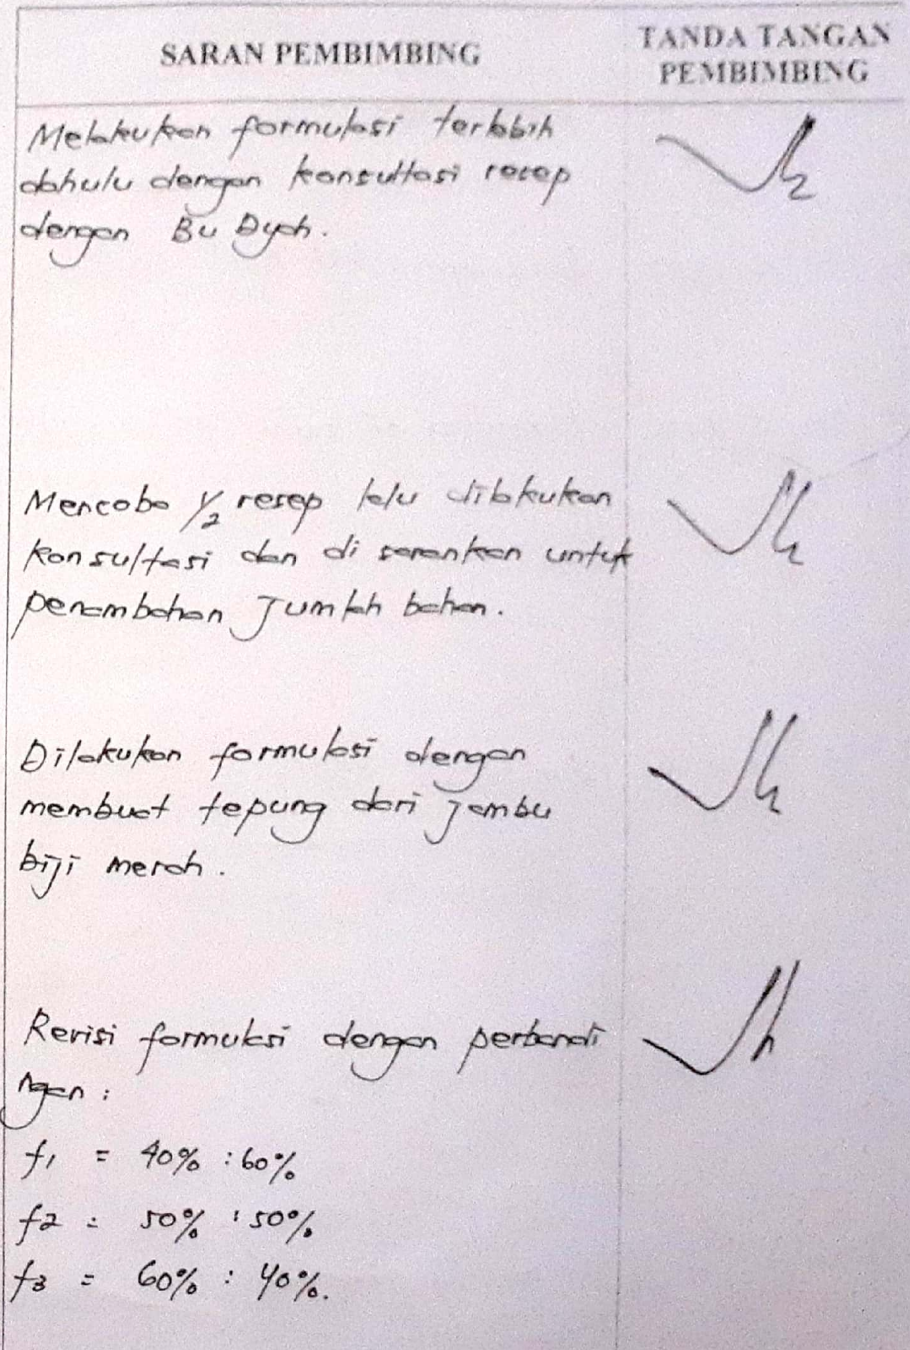 SARAN PEMBIMBING
TANDA TANGAN
PEMBIMBING
Melakukan formulasi terlebih
dahulu dengan konsultasi resep
dengan Bu Dyah.
Mencoba 1/2 resep lalu dilakukan
konsultasi dan di sarankan untuk
penambahan Jumlah bahan.
Dilakukan formulasi dengan
membuat tepung dari jambu
biji merah.
Revisi formulasi dengan perbandi
ngan :
f1 = 40% : 60%
f2 = 50% : 50%
f3 = 60% : 40%.